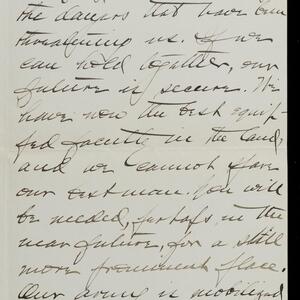 the dangers that have been
threatening us. If we
can hold together, our
future is secure. We
have now the best equip-
ped faculty in the land,
and we cannot spare
our best man. You will
be needed, perhaps in the
near future, for a still
more prominent place.
Our army is mobilized